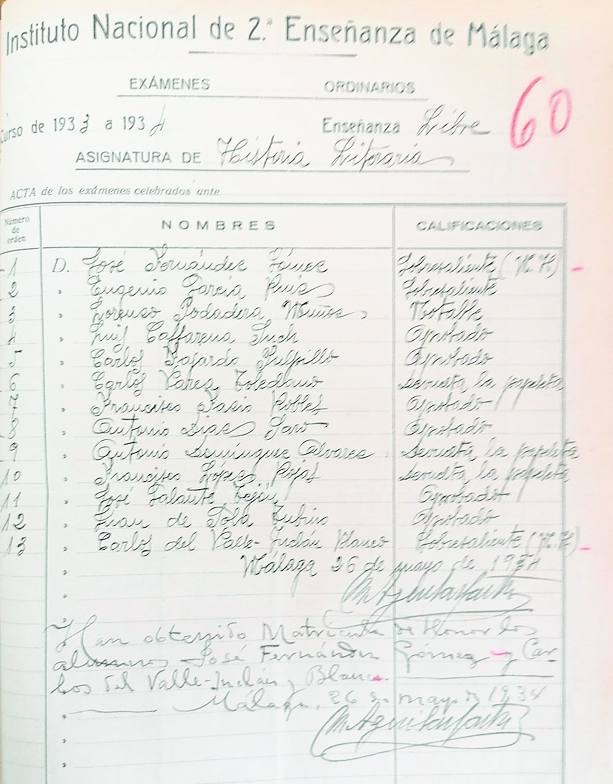 Instituto Nacional de 2.ª Enseñanza de Málaga
EXÁMENES ORDINARIOS
60
Curso de 1933 a 1934 Enseñanza Libre
ASIGNATURA DE Historia Literaria
ACTA de los exámenes celebrados ante
Número de orden NOMBRES CALIFICACIONES
1 D. José Fernández Gómez Sobresaliente (M. H.)
2 " Eugenio García Ruiz Sobresaliente
3 " Lorenzo Podadera Muñoz Notable
4 " Luis Caffarena Such Aprobado
5 " Carlos Fajardo Aprobado
6 " Carlos Toledano devuelta la papeleta
7 " Francisco Robles Aprobado
8 " Antonio Díaz Aprobado
9 " Antonio Domínguez Álvarez devuelta la papeleta
10 " Francisco López Rojas devuelta la papeleta
11 " José Galante Aprobado
12 " Juan de Sola Rubino Aprobado
13 " Carlos del Valle-Inclán Blanco Sobresaliente (M. H.)
Málaga 26 de mayo de 1934
Han obtenido Matrícula de Honor los
alumnos José Fernández Gómez y Car-
los del Valle-Inclán y Blanco.
Málaga, 26 de mayo de 1934